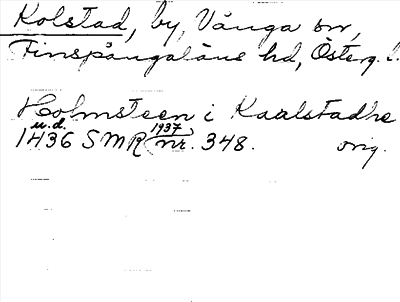 Kolstad, by, Vånga sn,
Finspångaläns hd, Österg. l.
Holmsteen i Kaalstadhe
u.d. 1937
1436 SMR nr. 348. orig.